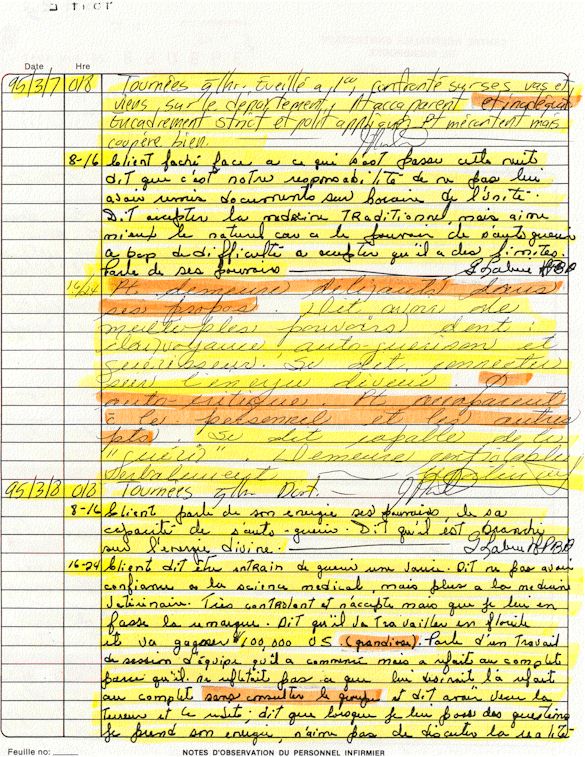 Date Hre
95/3/7 0/8 Tournées q 1hr, Éveillé à 1hr, confronté sur ses vas et
viens, sur le département, Pt accaparent et inadéquat
Encadrement strict et polit appliqué, Pt mécontent mais
coopère bien.
8-16 Client faché face a ce qui s'est passé cette nuit
dit que c'est notre responsabilité de ne pas lui
avoir remis documents sur horaire de l'unité.
Dit accepter la medecine TRaditionnel, mais aime
mieux le naturel car a le pouvoir de s'auto-guerir
a bcp de difficulté a accepter qu'il a des limites.
Parle de ses pouvoirs
16/24 Pt demeure délirants dans
ses propos. Dit avoir de
multiples pouvoirs dont :
clairvoyance auto-guérison et
guérisseur. Se dit connecter
sur l'energie divine.
auto-critique. Pt accaparent
à le personnel et les autres
pts. Se dit capable de les
"guérir". Demeure
verbalement
95/3/8 0/8 Tournées q 1hr Dort.
8-16 Client parle de son energie ses pouvoirs, de sa
capacité de s'auto-guerir. Dit qu'il est branché
sur l'énergie divine.
16-24 Client dit être entrain de guerir une
Dit ne pas avoir
confiance a la science medical, mais plus a la medecine
Vétérinaire. Très contrôlant et n'accepte mais que je lui en
fasse la remarque. Dit qu'il va Travailler en floride
et va gagner $100,000 US (grandiose). Parle d'un Travail
de session d'équipe qu'il a commencé mais a refait au complet
parce qu'il ne reflétait pas ce que lui desirait l'a refait
au complet sans consulter le groupe et dit avoir
terreur et ce
dit que lorsque je lui pose des questions
je prend son energie, n'aime pas de discuter la réalité-
Feuille no:
NOTES D'OBSERVATION DU PERSONNEL INFIRMIER